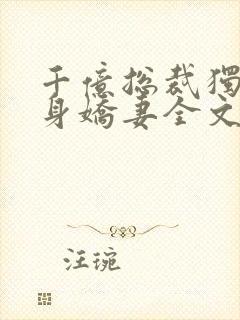 千億總裁獨
身嬌妻全文
汪琬